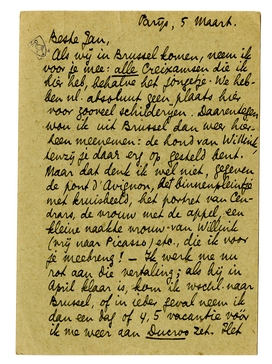 Parijs, 5 Maart.
Beste Jan,
Als wij in Brussel komen, neem ik
voor je mee: alle Creixamsen die ik
hier heb, behalve het jongetje. We heb-
ben nl. absoluut geen plaats hier
voor zooveel schilderyen. Daarentegen
wou ik uit Brussel dan weer hier-
heen meenemen: de hond van Willink,
tenzij je daar erg op gesteld bent.
Maar dat denk ik wel niet, gegeven
de pont d'Avignon, het binnenpleintje
met kruisbeeld, het portret van Cen-
drars, de vrouw met de appel, een
kleine naakte vrouw van Willink
(vrij naar Picasso) etc., die ik voor
je meebreng! — Ik werk me nu
rot aan die vertaling; als hij in
April klaar is, kom ik wschl. naar
Brussel, of in ieder geval neem ik
dan een dag of 4, 5 vacantie voor
ik me weer aan Ducroo zet. Het